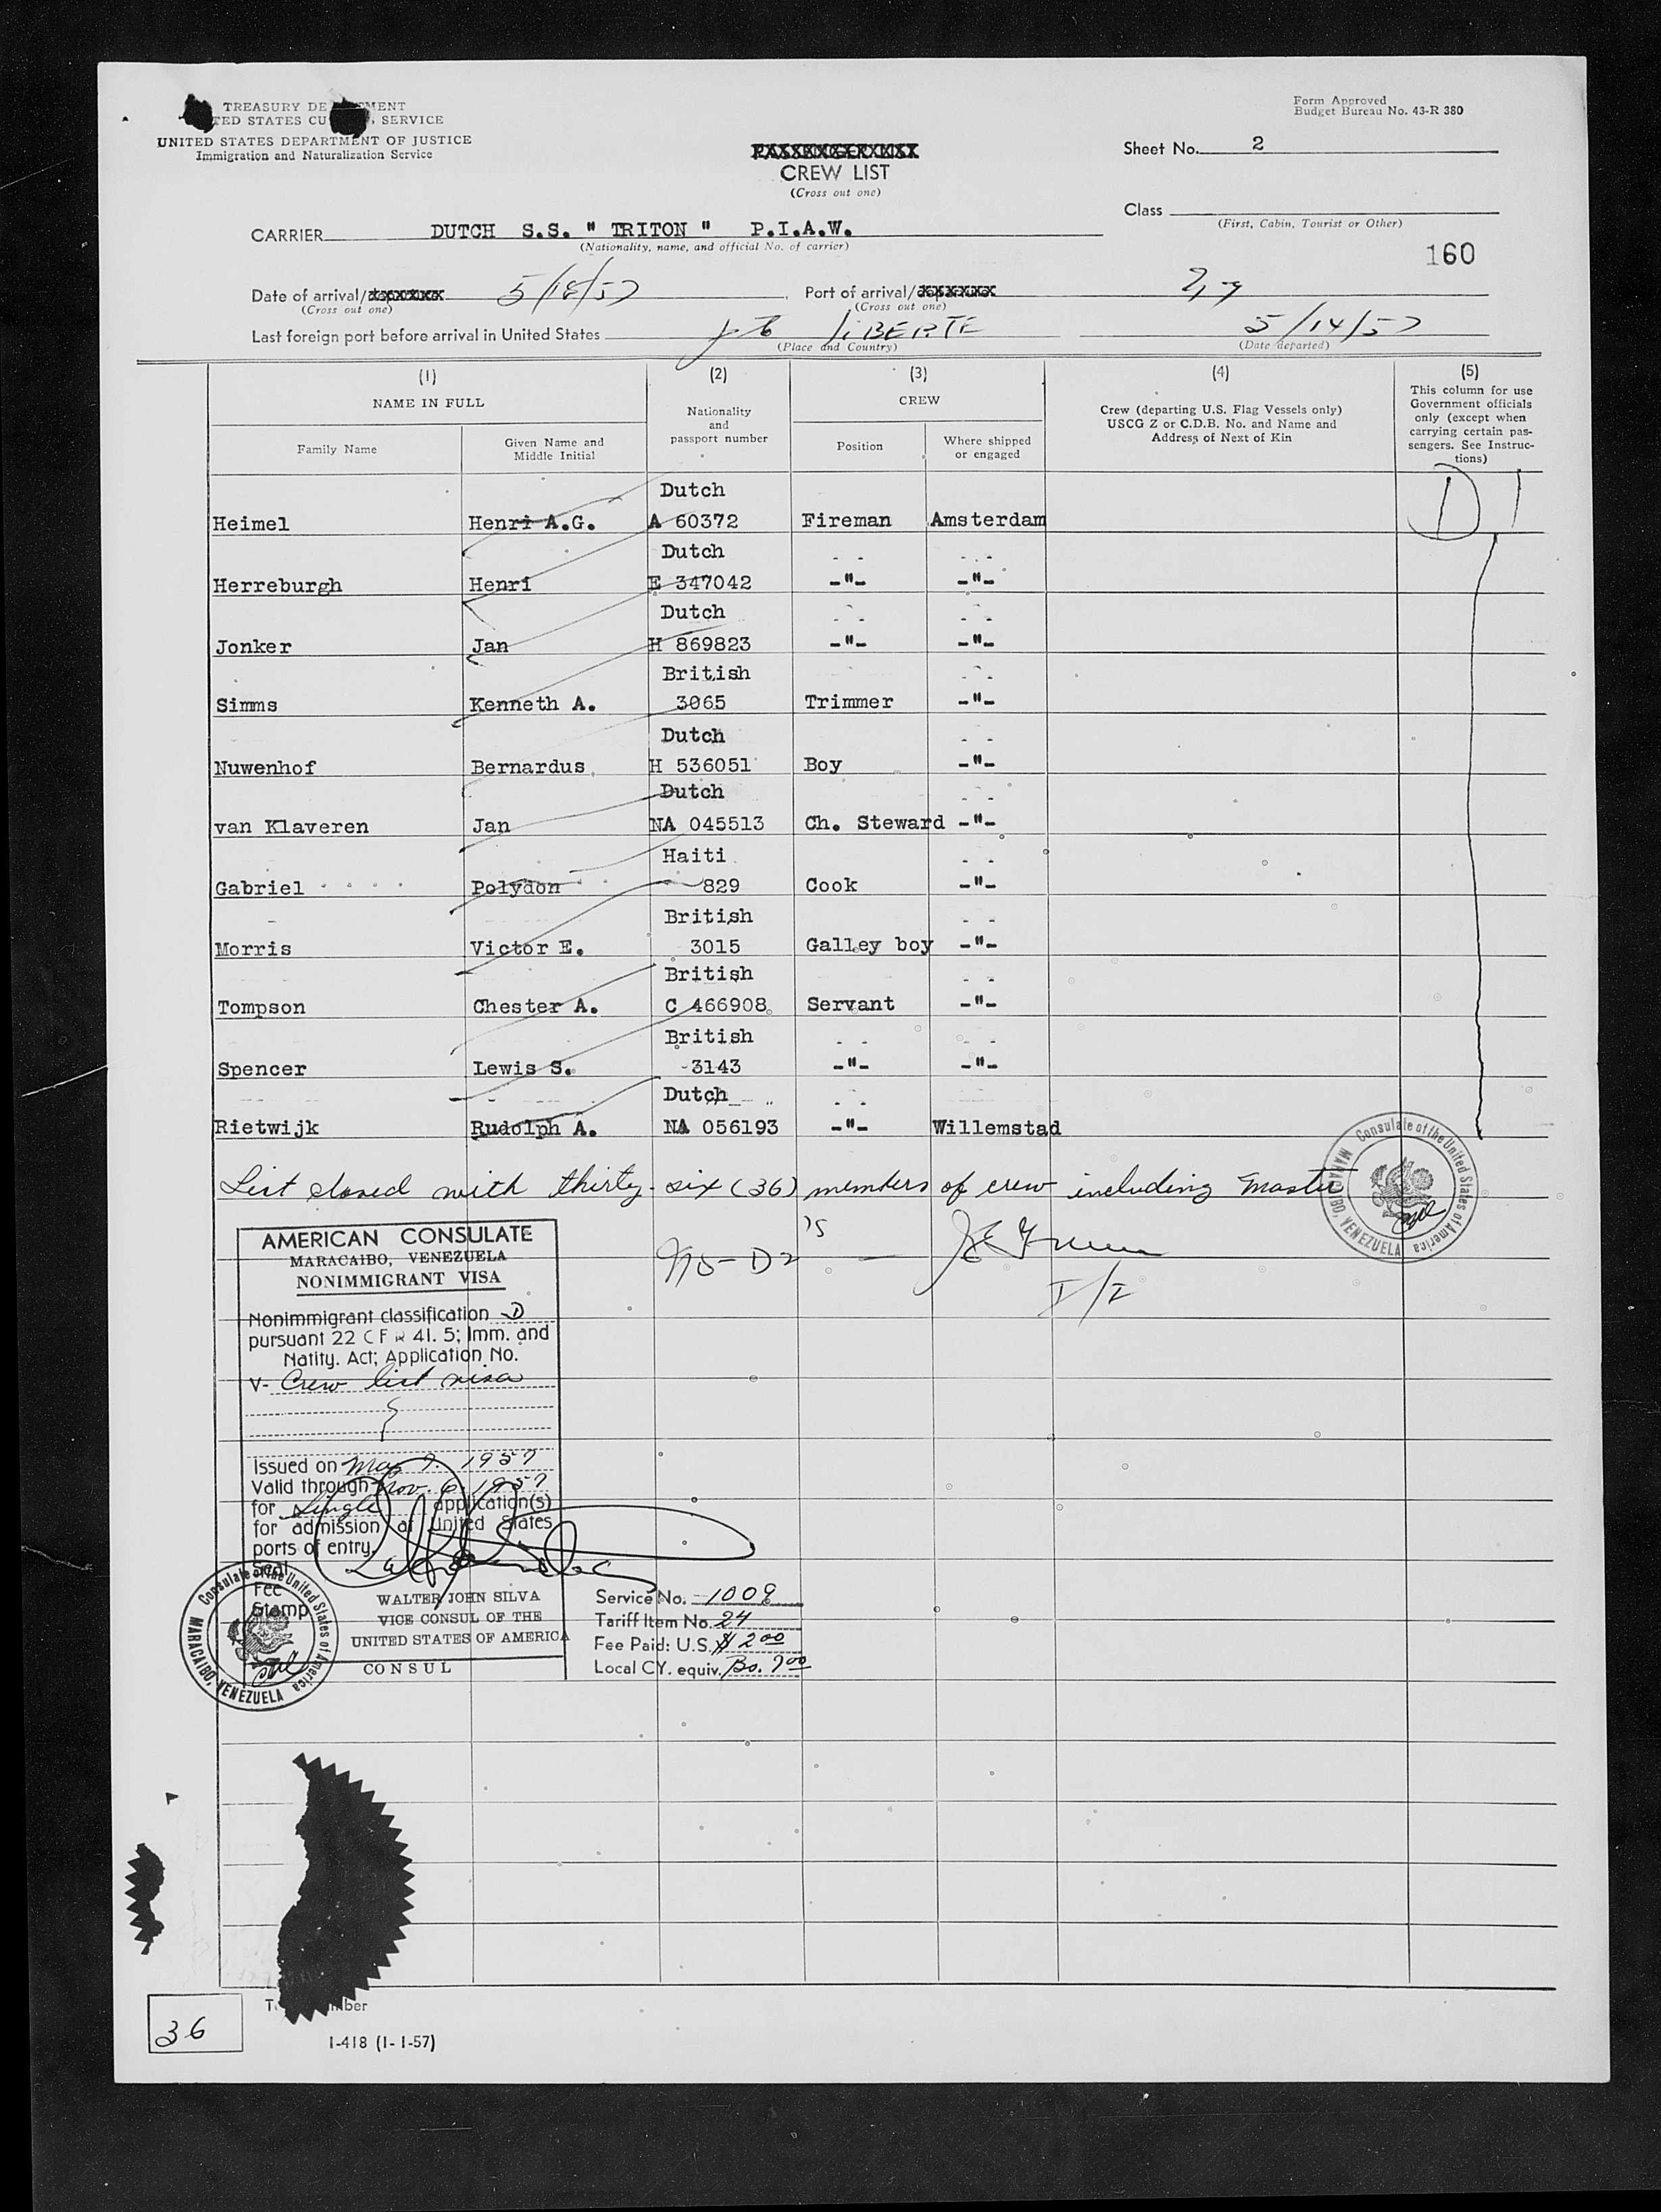 TREASURY DE MENT
TED STATES CU , SERVICE
UNITED STATES DEPARTMENT OF JUSTICE
Immigration and Naturalization Service
Form Approved
Budget Bureau No. 43-R 380
PASSENGER LIST
CREW LIST
(Cross out one)
Sheet No. 2
Class
(First, Cabin, Tourist or Other)
CARRIER DUTCH S.S. " TRITON " P.I.A.W.
(Nationality, name, and official No. of carrier)
160
Date of arrival/ 5/18/57 Port of arrival/ N.Y
(Cross out one) (Cross out one)
Last foreign port before arrival in United States LiBERTE 5/14/57
(Place and Country) (Date departed)
(1) (2) (3) (4) (5)
NAME IN FULL Nationality and passport number CREW Crew (departing U.S. Flag Vessels only) USCG Z or C.D.B. No. and Name and Address of Next of Kin This column for use Government officials only (except when carrying certain passengers. See Instructions)
Family Name Given Name and Middle Initial Position Where shipped or engaged
Dutch
Heimel Henri A.G. A 60372 Fireman Amsterdam D 1
Dutch
Herreburgh Henri E 347042 -"- -"-
Dutch
Jonker Jan H 869823 -"- -"-
British
Simms Kenneth A. 3065 Trimmer -"-
Dutch
Nuwenhof Bernardus H 536051 Boy -"-
Dutch
van Klaveren Jan NA 045513 Ch. Steward -"-
Haiti
Gabriel Polydon 829 Cook -"-
British
Morris Victor E. 3015 Galley boy -"-
British
Tompson Chester A. C 466908 Servant -"-
British
Spencer Lewis S. 3143 -"- -"-
Dutch
Rietwijk Rudolph A. NA 056193 -"- Willemstad
List closed with thirty-six (36) members of crew including Master
Consulate of the United States of America
MARACAIBO, VENEZUELA
No - D2's —
I/I
AMERICAN CONSULATE
MARACAIBO, VENEZUELA
NONIMMIGRANT VISA
Nonimmigrant classification D
pursuant 22 CFR 41.5; Imm. and
Natity. Act; Application No.
V- Crew list visa
Issued on May 7. 1957
Valid through Nov. 6, 1957
for Single application(s)
for admission at United States
ports of entry.
Seal
Fee
Stamp
Consulate of the United States of America
MARACAIBO, VENEZUELA
WALTER JOHN SILVA
VICE CONSUL OF THE
UNITED STATES OF AMERICA
CONSUL
Service No. 1009
Tariff Item No. 24
Fee Paid: U.S. $ 2 00
Local CY. equiv. Bs. 7 00
36
T mber
I-418 (1-1-57)